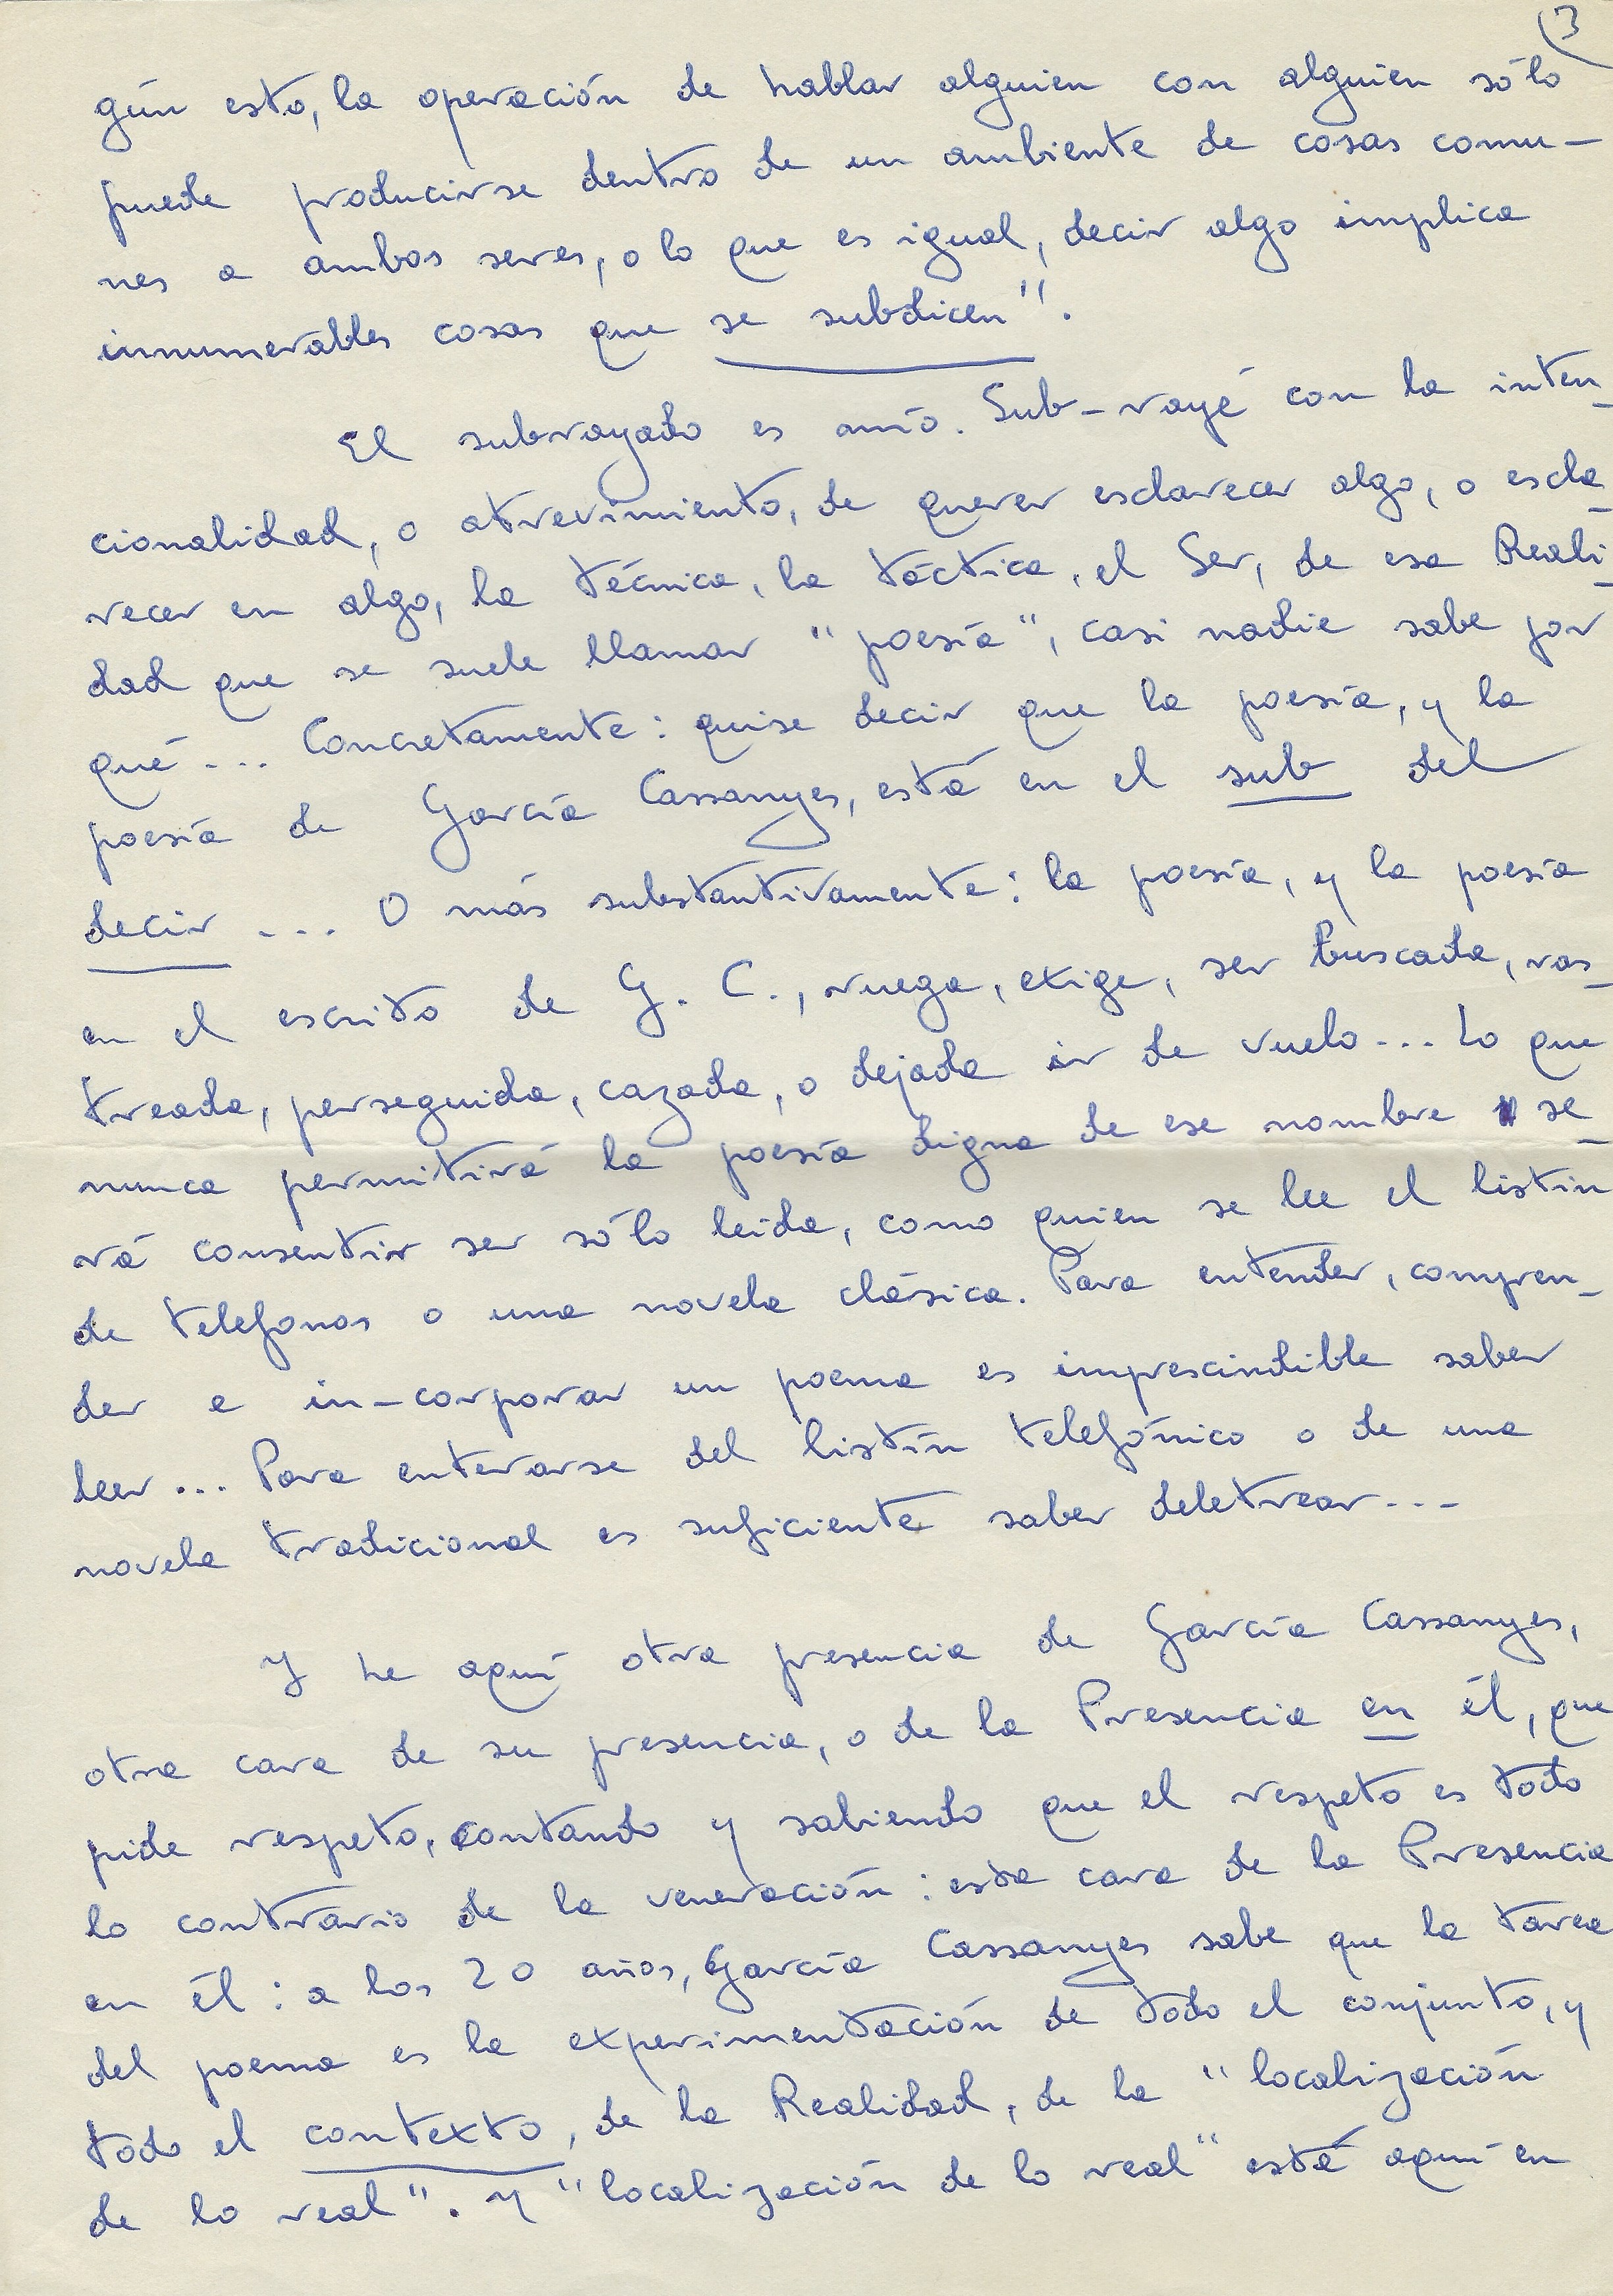 (3
gún esto, la operación de hablar alguien con alguien sólo
puede producirse dentro de un ambiente de cosas comu-
nes a ambos seres, o lo que es igual, decir algo implica
innumerables cosas que se subdicen".
El subrayado es mío. Sub-rayé con la inten-
cionalidad, o atrevimiento, de querer esclarecer algo, o escla-
recer en algo, la técnica, la táctica, el Ser, de esa Reali-
dad que se suele llamar "poesía", casi nadie sabe por
qué... Concretamente: quise decir que la poesía, y la
poesía de García Cassanyes, está en el sub del
decir ... O más substantivamente: la poesía, y la poesía
en el escrito de G. C., ruega, exige, ser buscada, ras-
treada, perseguida, cazada, o dejada ir de vuelo... Lo que
nunca permitirá la poesía digna de ese nombre se-
rá consentir ser sólo leida, como quien se lee el listín
de telefonos o una novela clásica. Para entender, compren-
der e in-corporar un poema es imprescindible saber
leer... Para enterarse del listín telefónico o de una
novela tradicional es suficiente saber deletrear...
Y he aquí otra presencia de García Cassanyes,
otra cara de su presencia, o de la Presencia en él, que
pide respeto, contando y sabiendo que el respeto es todo
lo contrario de la veneración: esta cara de la Presencia
en él: a los 20 años, García Cassanyes sabe que la tarea
del poema es la experimentación de todo el conjunto, y
todo el contexto, de la Realidad, de la "localización
de lo real". Y "localización de lo real" está aquí en